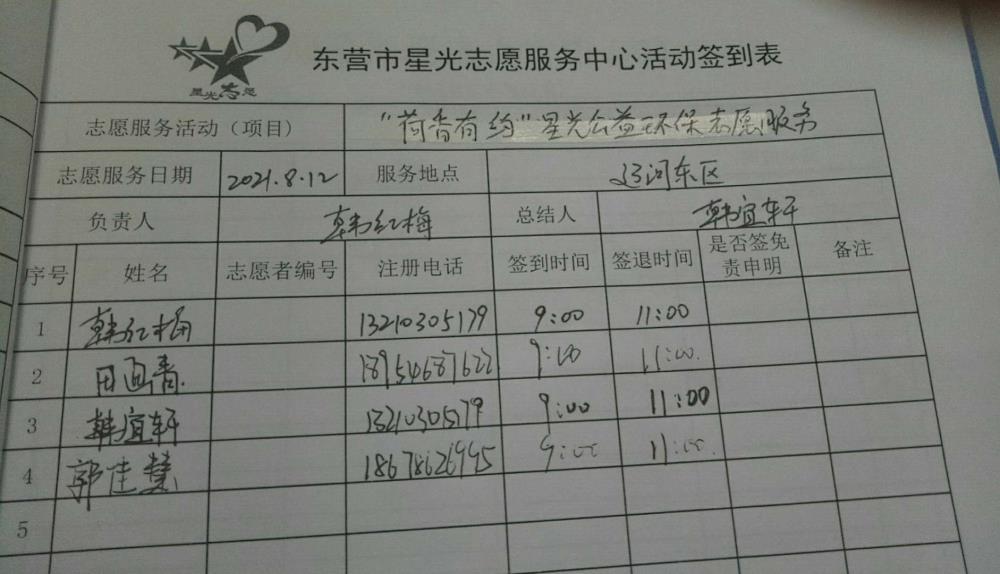 星光志愿
东营市星光志愿服务中心活动签到表
志愿服务活动（项目） “荷香有约”星光公益环保志愿服务
志愿服务日期 2021.8.12 服务地点 运河东区
负责人 韩红梅 总结人 韩宜轩
序号 姓名 志愿者编号 注册电话 签到时间 签退时间 是否签免责申明 备注
1 韩红梅 13210305179 9:00 11:00
2 田 青 18954687622 9:00 11:00
3 韩宜轩 13210305179 9:00 11:00
4 郭佳慧 18678626995 9:00 11:00
5